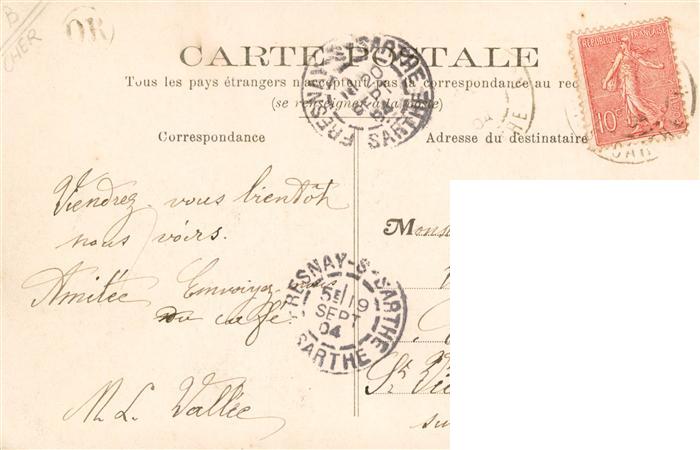 B
CHER
OR
CARTE POSTALE
Tous les pays étrangers n'acceptent pas la correspondance au rec
(se renseigner à la poste)
RÉPUBLIQUE FRANÇAISE
10c
FRESNAY-S-SARTHE
20
SEPT
04
SARTHE
04
HE
SAR
Correspondance
Adresse du destinataire
Viendrez vous bientôt
nous voirs.
Amitée Envoyez nous
du caffé.
M L. Vallée
Mons
St Vic
su
FRESNAY-S-SARTHE
5E/19
SEPT
04
SARTHE